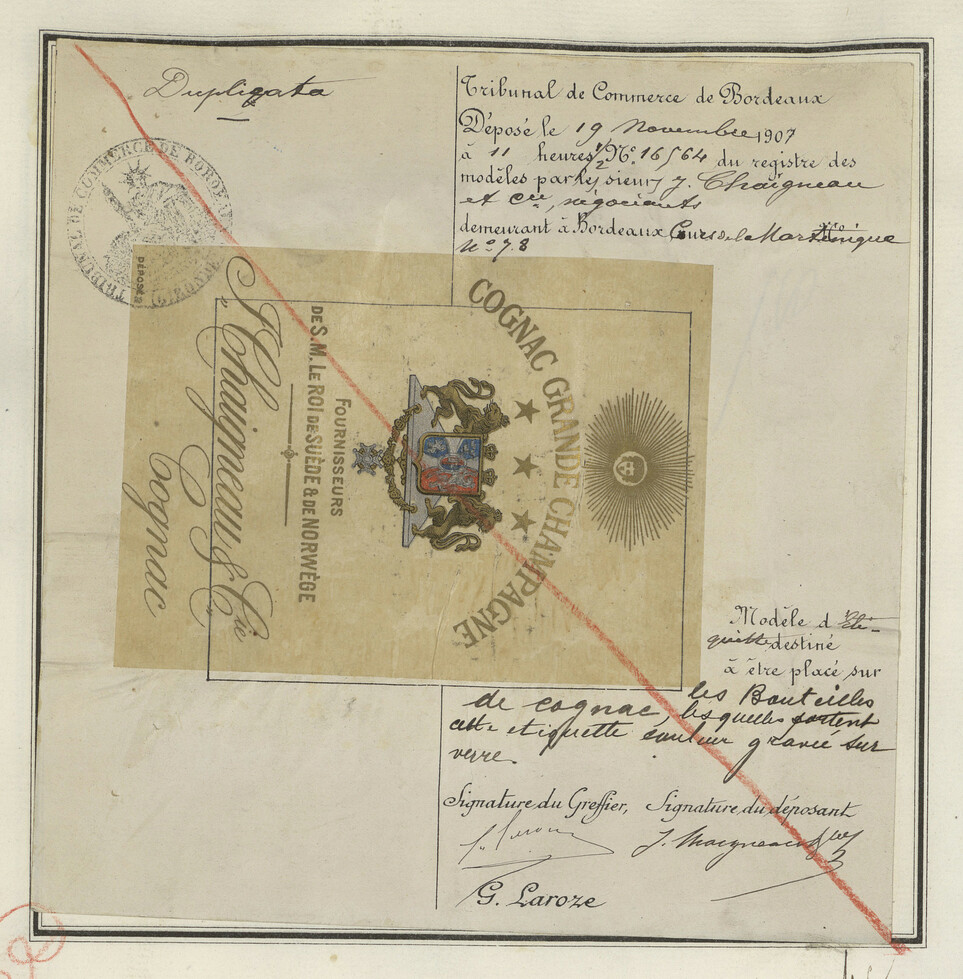 Dupliqata
Tribunal de Commerce de Bordeaux
Déposé le 19 Novembre 1907
à 11 heures 1/2 No. 16564 du registre des
modèles par les sieurs J. Chaigneau
et Cie, négociants
demeurant à Bordeaux Cours de la Martinique
No 78
TRIBUNAL DE COMMERCE DE BORDEAUX
(GIRONDE)
DÉPOSÉ
COGNAC GRANDE CHAMPAGNE
FOURNISSEURS
DE S. M. LE ROI DE SUÈDE & DE NORWÈGE
„J. Chaigneau & Cie„
Cognac
Modèle d'Eti-
quette destiné
à être placé sur
les Bouteilles
de cognac, lesquelles portent
cette etiquette gravée sur
verre.
Signature du Greffier, Signature du déposant
J. Chaigneau & Cie
G. Laroze